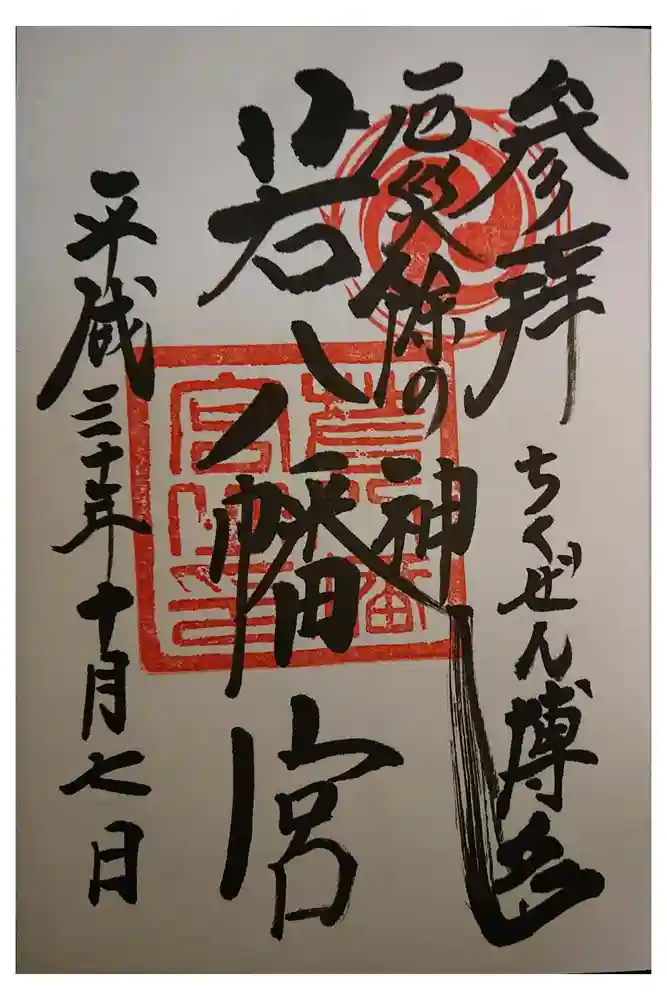 参拝
ちくぜん博多
厄災除の神
若八幡宮
平成三十年十月七日